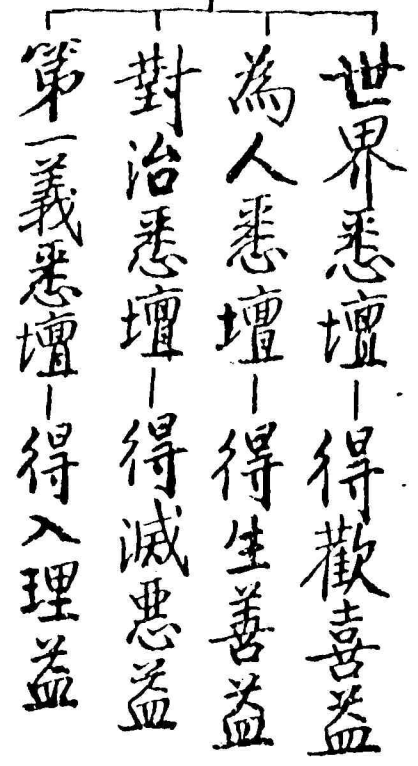 世界悉壇—得歡喜益
為人悉壇—得生善益
對治悉壇—得滅惡益
第一義悉壇—得入理益